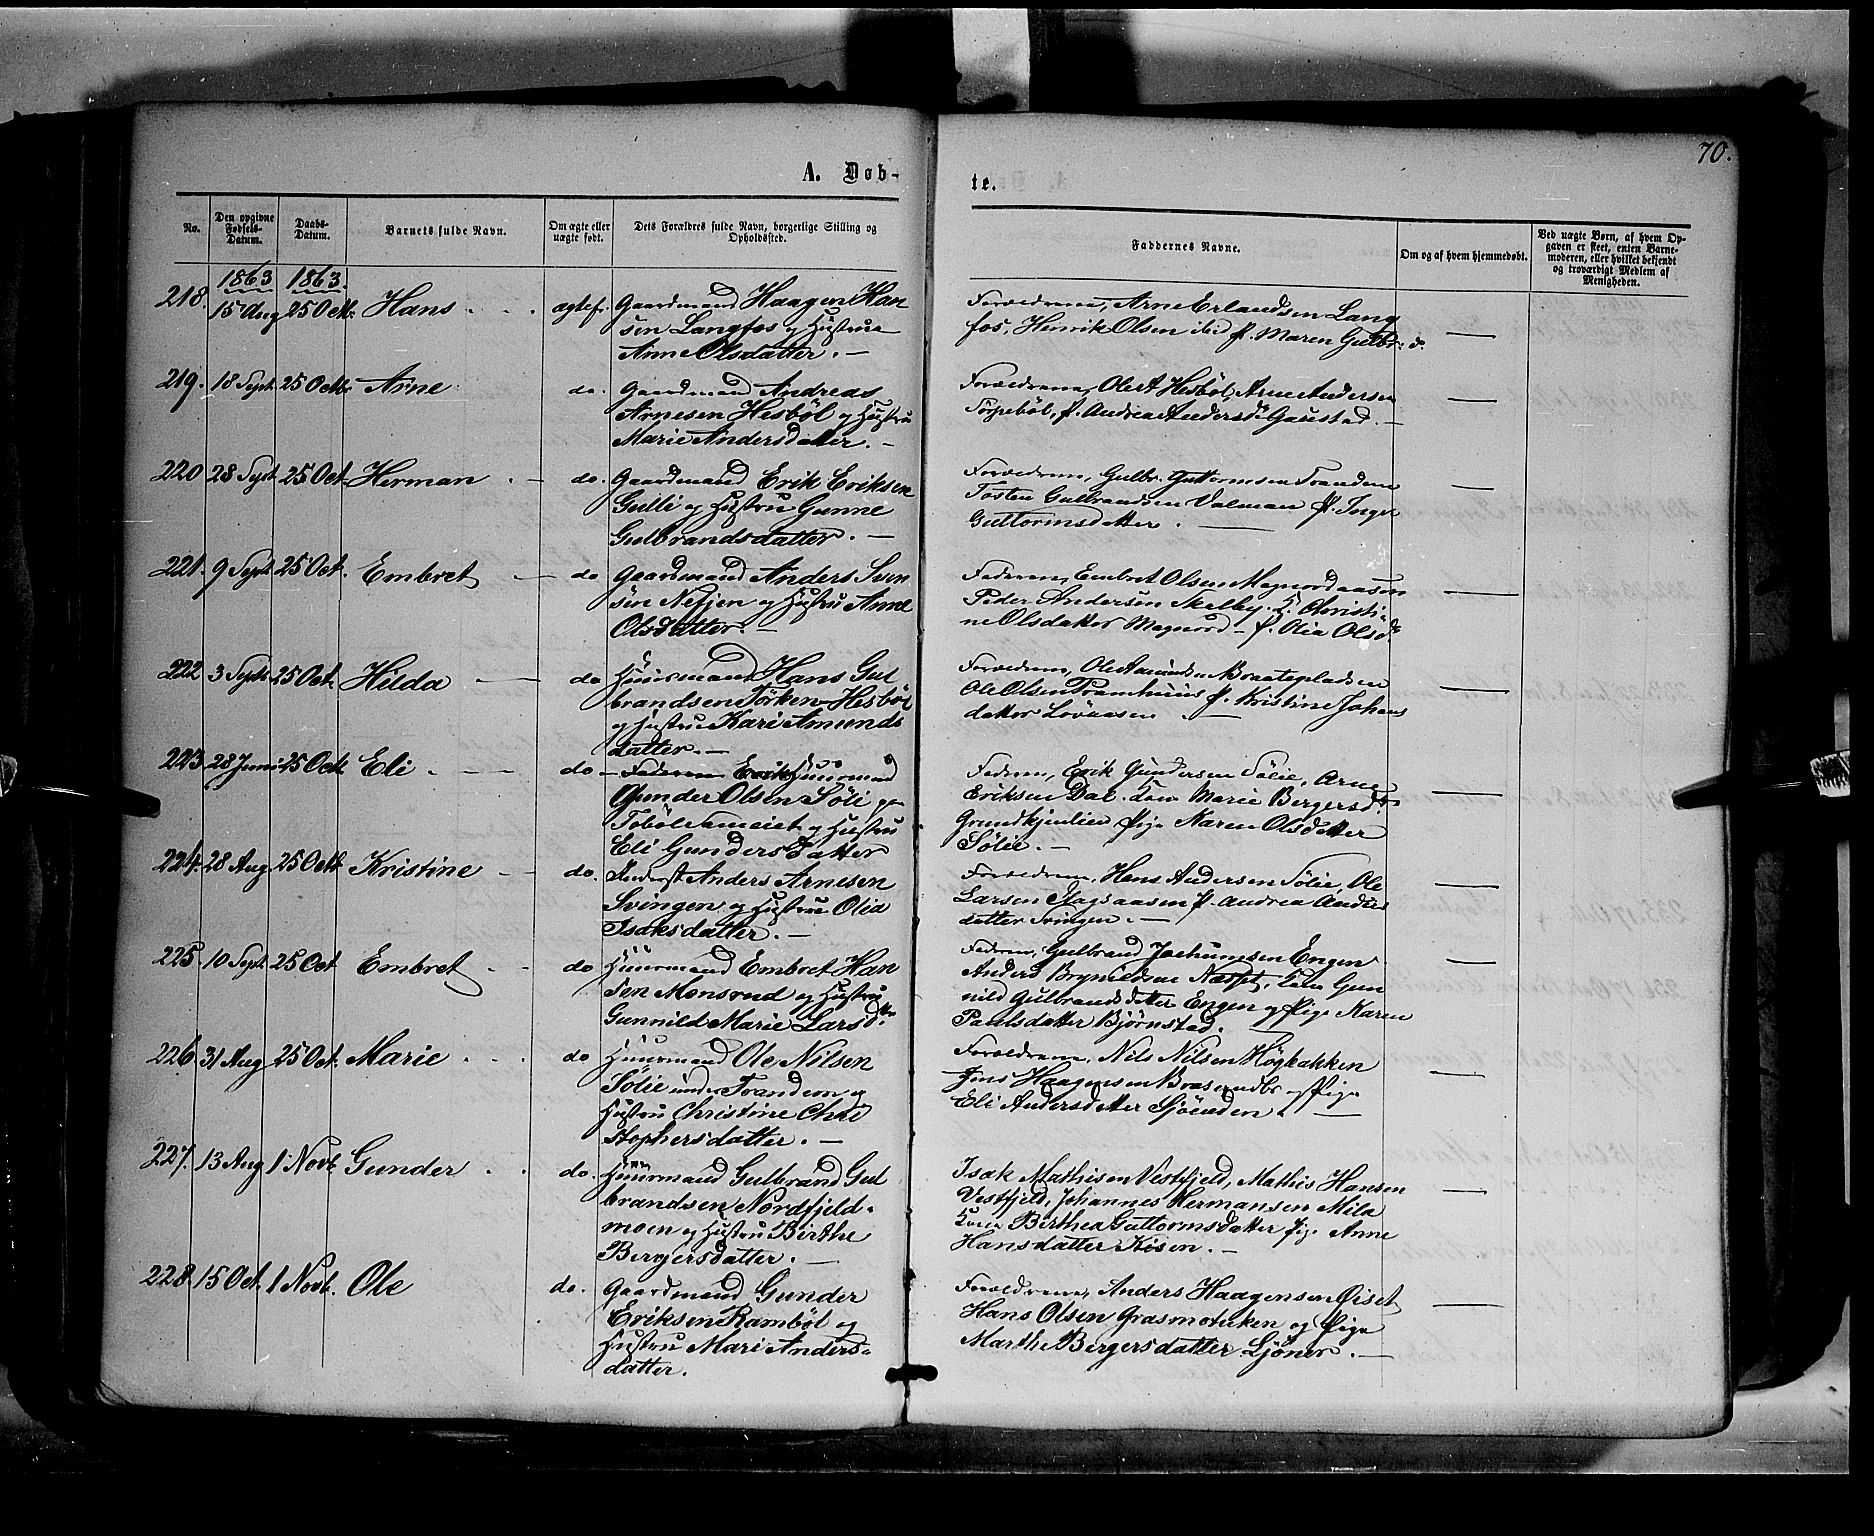 70.
A. Døb-
te.
No.
Den opgivne Fødsels-Datum.
Daabs-Datum.
Barnets fulde Navn.
Om ægte eller uægte født.
Dets Forældres fulde Navn, borgerlige Stilling og Opholdssted.
Faddernes Navne.
Om og af hvem hjemmedøbt.
Ved uægte Børn, af hvem Opgaven er skeet, enten Barnemoderen, eller hvilket bekjendt og troværdigt Medlem af Menigheden.
1863 1863.
218. 15 Aug 25 Oct. Hans ægtef. Gaardmand Haagen Han
sen Langfos og Hustrue
Anne Olsdatter. —
Forældrene, Arne Erlandsen Lang
fos, Henrik Olsen ibid P. Maren Gulbr: d. —
219. 18 Sept 25 Oct. Arne do. Gaardmand Andreas
Arnesen Hesböl og Hustru
Marie Andersdatter. —
Forældrene, Ole A Hesböl, Arne Andersen
Törpeböl, P. Andrea Andersd. Gaustad. — —
220 28 Sept 25 Oct. Herman — do. Gaardmand Erik Eriksen
Gulli og Hustru Gunne
Gulbrandsdatter. —
Forældrene, Gulbr. Guttormsen Trandem
Tosten Gulbrandsen Valman P. Inger
Guttormsdatter. — —
221. 9 Sept 25 Oct. Embret — do Gaardmand Anders Sven
sen Nefjen og Hustru Anne
Olsdatter. —
Faderen, Embret Olsen Magnordaasen
Peder Andersen Skelby. K. Christi
ne Olsdatter Magnord – P. Olia Olsd —
222 3 Sept 25 Oct. Hilda — do Huusmand Hans Gul
brandsen Törken-Hesböl
og Hustru Kari Amunds
datter. —
Forældrene, Ole Amundsen Braatepladsen
Ole Olsen Tramhuus P. Kristine Johans
datter Lövaasen — —
223. 28 Juni 25 Oct. Eli — do — Faderen Erik Huusmand
Gunder Olsen Söli
Toböl Sameiet og Hustru
Eli Gundersdatter
Faderen, Erik Gundersen Sölie, Arne
Eriksen Dal. Kone Marie Bergersd.
Grundkjenlien Pige Karen Olsdatter
Sölie. — —
224. 28 Aug. 25 Oct Kristine — do. Inderst Anders Arnesen
Svingen og Hustrue Olia
Isaksdatter. —
Forældrene, Hans Andersen Sölie, Ole
Larsen Flagsaasen P. Andrea Anders
datter Svingen. — —
225. 10 Sept. 25 Oct Embret do Huusmand Embret Han
sen Monsrud og Hustru
Gunnild Marie Larsd.
Faderen, Gulbrand Jochumsen Engen
Anders Brynildsen Næsset, Kone Gun
nild Gulbrandsdatter Engen og Pige Karen
Paulsdatter Bjørnstad. —
226 31 Aug 25 Oct. Marie do Huusmand Ole Nilsen
Sölie under Trandem og
Hustru Christine Chri
stophersdatter. —
Forældrene, Nils Nilsen Högbakken
Jens Haagensen Brasrudbr og Pige
Eli Andersdatter Sjöenden. — —
227. 13 Aug 1 Novb Gunder do. Huusmand Gulbrand Gul
brandsen Nordfjeld-
moen og Hustru Birthe
Bergersdatter. —
Isak Mathisen Vestfjeld, Mathis Hansen
Vestfjeld, Johannes Hermansen Mila
Kone Berthea Guttormsdatter Pige Anne
Hansdatter Kisen. — —
228. 15 Oct. 1 Novb. Ole do. Gaardmand Gunder
Eriksen Ramböl og
Hustru Mari Anders-
datter.
Forældrene, Anders Haagensen Öiset
Hans Olsen Grasmobakken og Pige
Marthe Bergersdatter Ljöner. — —